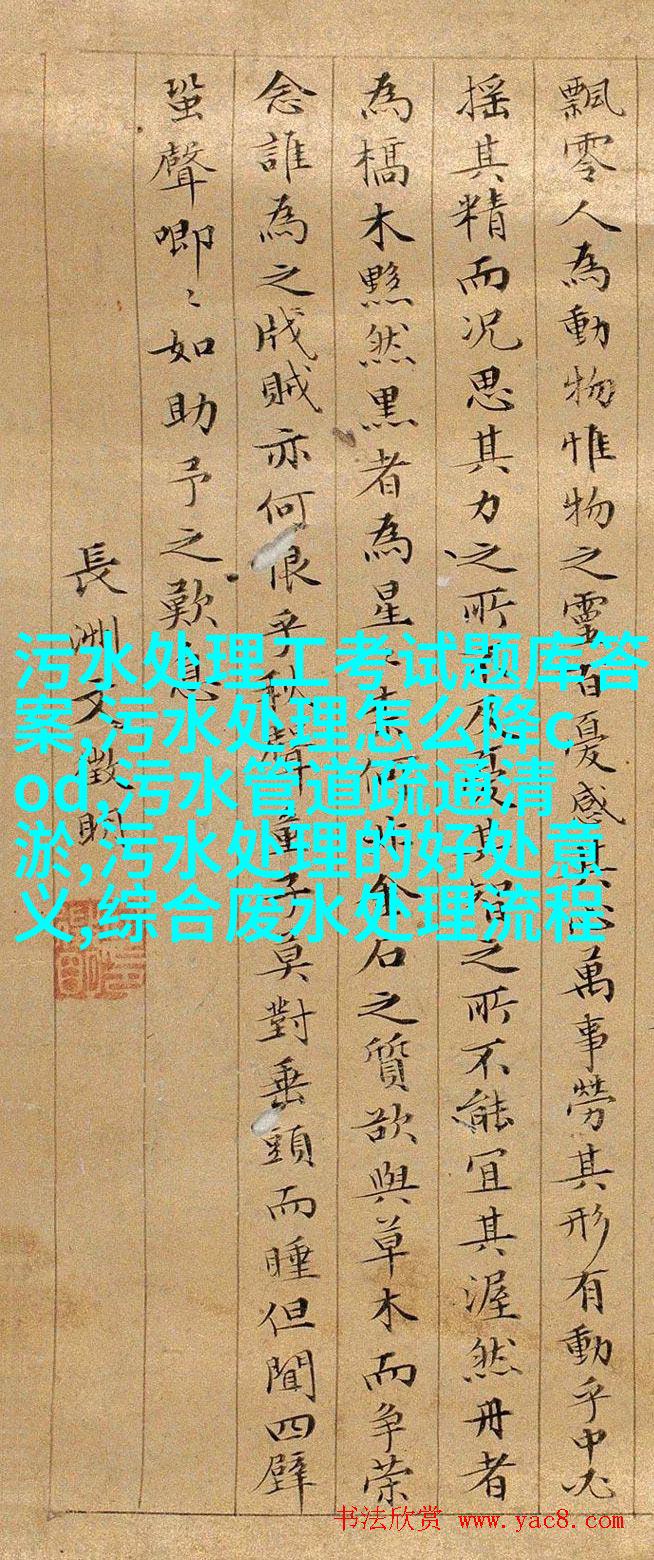 飄零人為動物惟物之靈百憂感其心萬事勞其形有動乎中必
搖其精而况思其力之所不及憂其智之所不能宜其渥然丹者
為槁木黟然黒者為星〻柰何非金石之質欲與草木而争荣
念誰為之戕賊亦何恨乎秋聲童子莫對垂頭而睡但聞四壁
蛩聲唧〻如助予之歎息
長洲文徵明
污水处理工考试题库答
案,污水处理怎么降c
od,污水管道疏通清
淤,污水处理的好处意
义,综合废水处理流程
书法欣赏 www.yac8.com